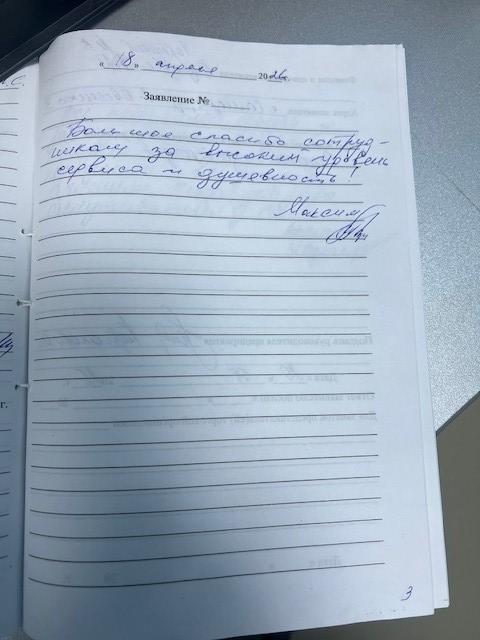 « 18 » апреля 2026г.
Заявление №
Большое спасибо сотруд-
никам за высокий уровень
сервиса и душевность!
Максим
3